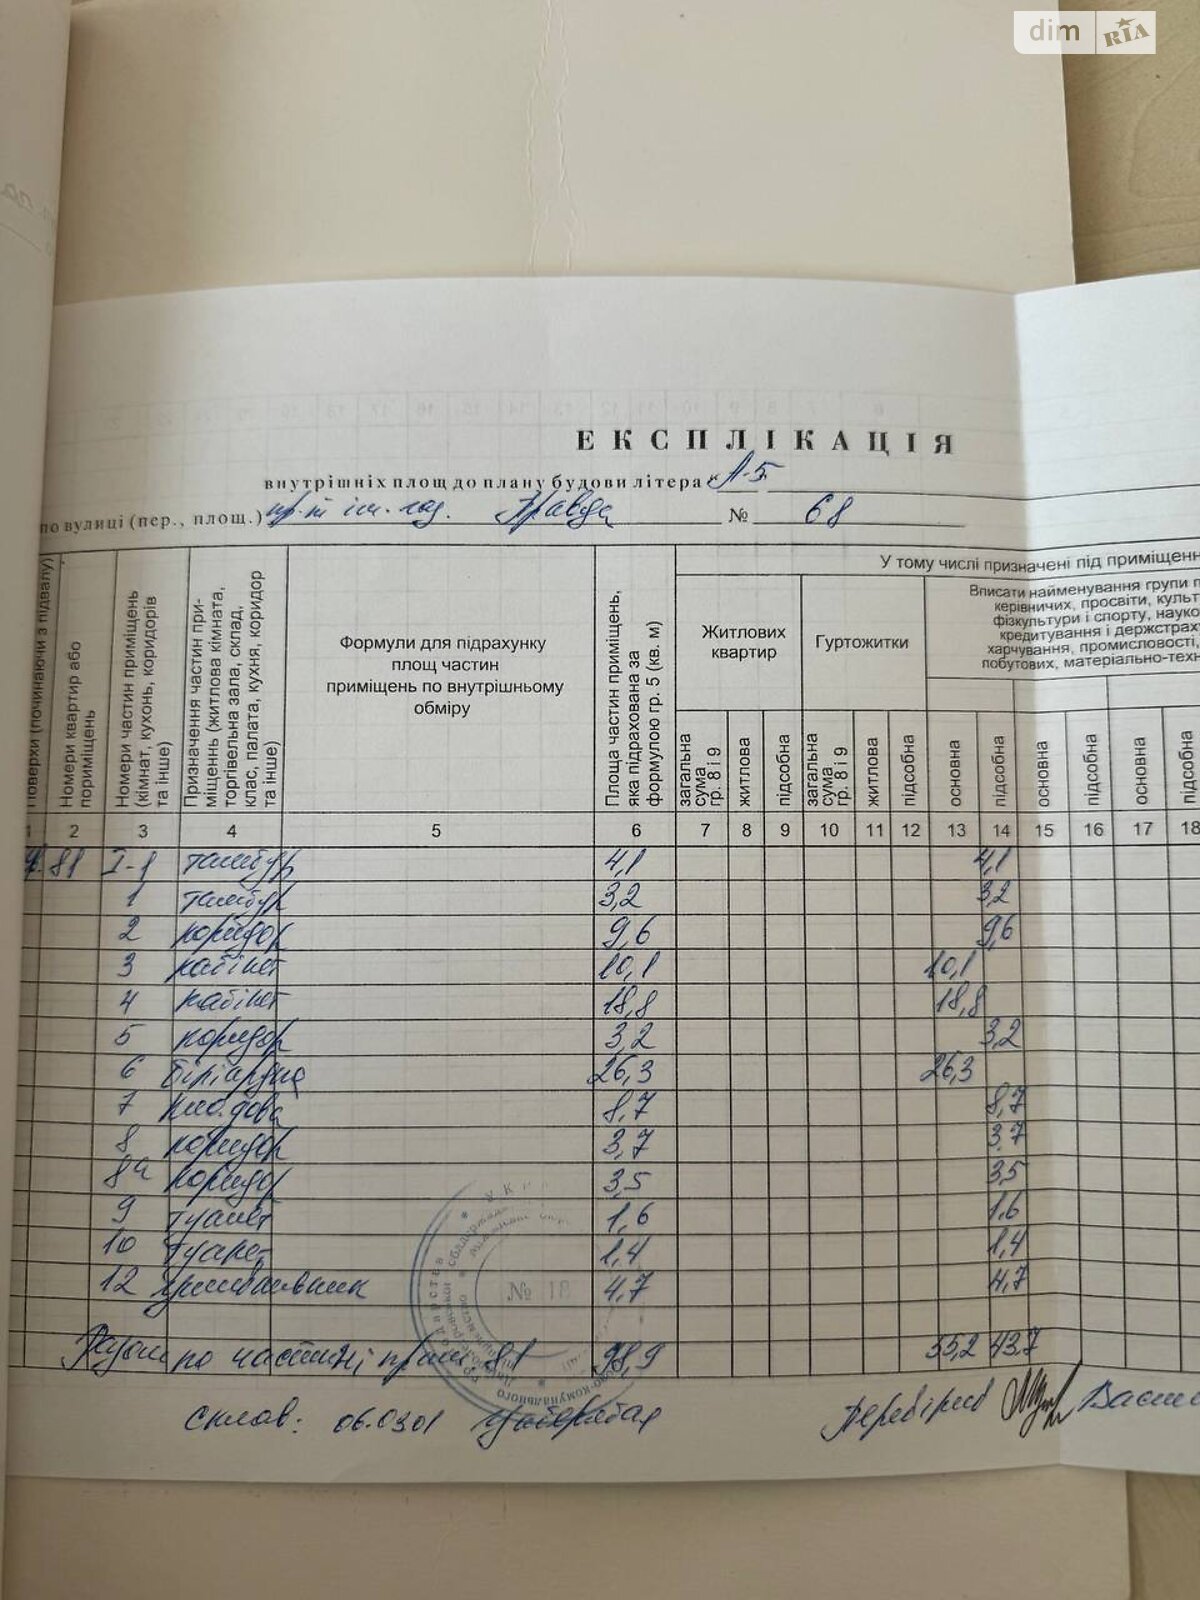 dim RIA
ЕКСПЛІКАЦІЯ
внутрішніх площ до плану будови літера "А-5"
по вулиці (пер., площ.) пр-т ім. газ. Правда № 68
Поверхи (починаючи з підвалу)
Номери квартир або приміщень
Номери частин приміщень (кімнат, кухонь, коридорів та інше)
Призначення частин приміщень (житлова кімната, торгівельна зала, склад, клас, палата, кухня, коридор та інше)
Формули для підрахунку площ частин приміщень по внутрішньому обміру
Площа частин приміщень, яка підрахована за формулою гр. 5 (кв. м)
У тому числі призначені під приміщенн
Житлових квартир
Гуртожитки
Вписати найменування групи п
керівничих, просвіти, культ
фізкультури і спорту, науко
кредитування і держстрах
харчування, промисловості,
побутових, матеріально-техн
загальна сума гр. 8 і 9
житлова
підсобна
загальна сума гр. 8 і 9
житлова
підсобна
основна
підсобна
основна
підсобна
основна
підсобна
1 2 3 4 5 6 7 8 9 10 11 12 13 14 15 16 17 18
81 I-1 тамбур 4,1 4,1
1 тамбур 3,2 3,2
2 коридор 9,6 9,6
3 кабінет 10,1 10,1
4 кабінет 18,8 18,8
5 коридор 3,2 3,2
6 більярдна 26,3 26,3
7 кладова 8,7 8,7
8 коридор 3,7 3,7
8а коридор 3,5 3,5
9 туалет 1,6 1,6
10 туалет 1,4 1,4
12 умивальник 4,7 4,7
Разом по частині прим. 81 98,9 55,2 43,7
№ 18
Склав: 06.03.01
Перевірив